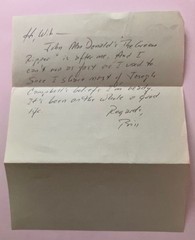 Hi, Wib —
John MacDonald's "The Green
Ripper" is after me. And I
can't run as fast as I used to
Since I share most of Joseph
Campbell's beliefs I'm ready.
It's been on the whole a good
life
Regards,